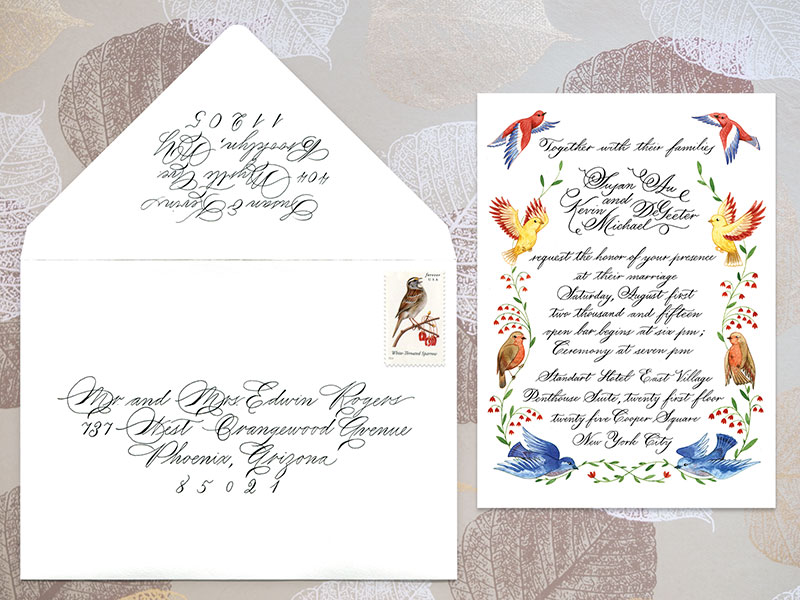 Susan & Kevin
404 Myrtle Ave
Brooklyn, NY
11205
forever
USA
White-Throated Sparrow
Mr and Mrs Edwin Rogers
737 West Orangewood Avenue
Phoenix, Arizona
85021
Together with their families
Susan Au
and
Kevin DeGeeter
Michael
request the honor of your presence
at their marriage
Saturday, August first
two thousand and fifteen
open bar begins at six pm;
Ceremony at seven pm
Standart Hotel East Village
Penthouse Suite, twenty first floor
twenty five Cooper Square
New York City